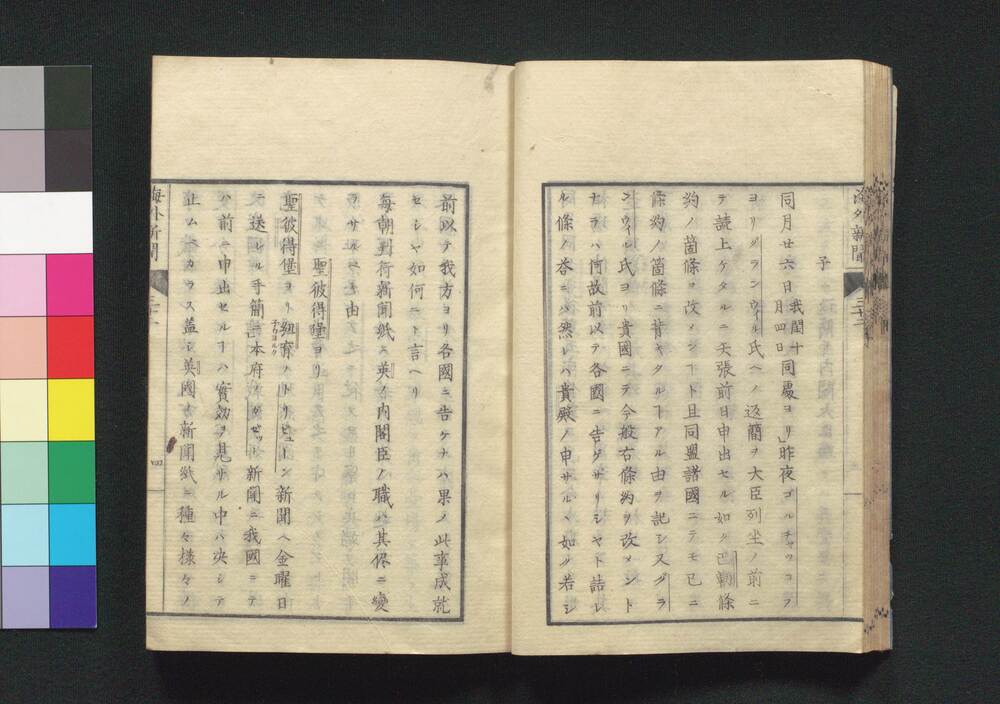 海外新聞
子
同月廿六日我閏十月四日同處ヨリ」昨夜ゴルチャッコーフ
ヨリグランウィル氏ヘノ返簡ヲ大臣列坐ノ前ニ
テ読上ケタルニ夭張前日申出セル如ク巴勒條
約ノ箇條ヲ改メンヿト且同盟諸國ニテモ已ニ
條約ノ箇條ニ背キタルヿアル由ヲ記シ又グラ
ンウィル氏ヨリ貴國ニテ今般右條約ヲ改メント
ナラハ何故前以テ各國ニ告ゲザリシヤト詰レ
ル條ノ荅ニハ然レハ貴殿ノ申サルヽ如ク若シ
前以テ我方ヨリ各國ニ告ケナハ果メ此事成就
セシヤ如何ニト言ヘリ
毎朝刊行新聞紙ニ英ノ内閣臣ノ職ハ其侭ニ變
ラサルベキ由
聖彼得堡ヨリ
聖彼得堡ヨリ紐育ノトリビューン新聞ヘ金曜日
ニテ送レル手簡ニ」本府ノガゼット新聞ニ我國ニテ
ハ前ニ申出セルヿハ實効ヲ見サル中ハ决シテ
止ムヘカラス蓋シ英國古新聞紙ニ種々様々ノ
海外新聞
四